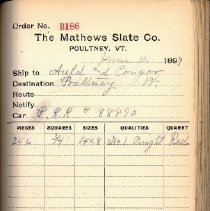 Order No. B186
The Mathews Slate Co.
POULTNEY, VT.
June 10, 1897
Ship to Auld and Conger
Destination Poultney Vt.
Route
Notify
Car P.R.R # 88990
PIECES SQUARES SIZES QUALITIES QUARRY
246 3/4 14x8 No. 1 Red